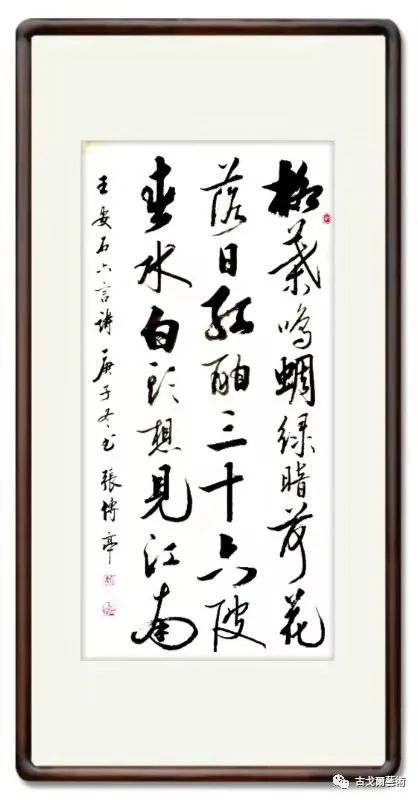 柳葉鳴蜩緑暗荷花
落日紅酣三十六陂
春水白頭想見江南
王安石六言詩 庚子冬书 張博亭
古戈爾藝術